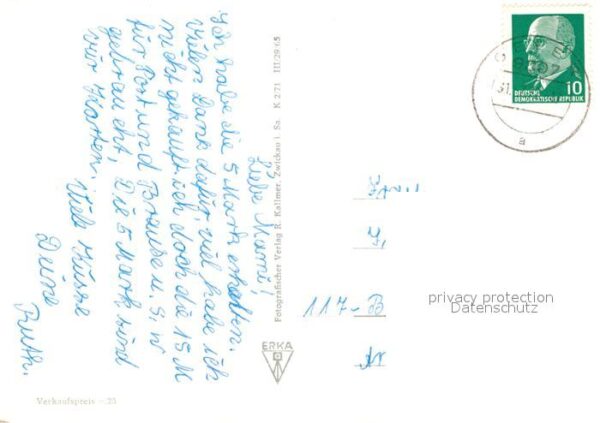 Liebe Mami!
Ich habe die 5 Mark erhalten.
Vielen Dank dafür, viel habe ich
nicht gekauft, ich doch die 15 M
für Port und Brause u. s. w
gebraucht, Die 5 Mark sind
wir Karten.
Viele Küsse
Deine
Ruth.
Fotografischer Verlag R. Kallmer, Zwickau i. Sa. K 271 III/29/65
ERKA
Verkaufspreis - 25
10
DEUTSCHE
DEMOKRATISCHE REPUBLIK
31.
a
117-B
privacy protection
Datenschutz